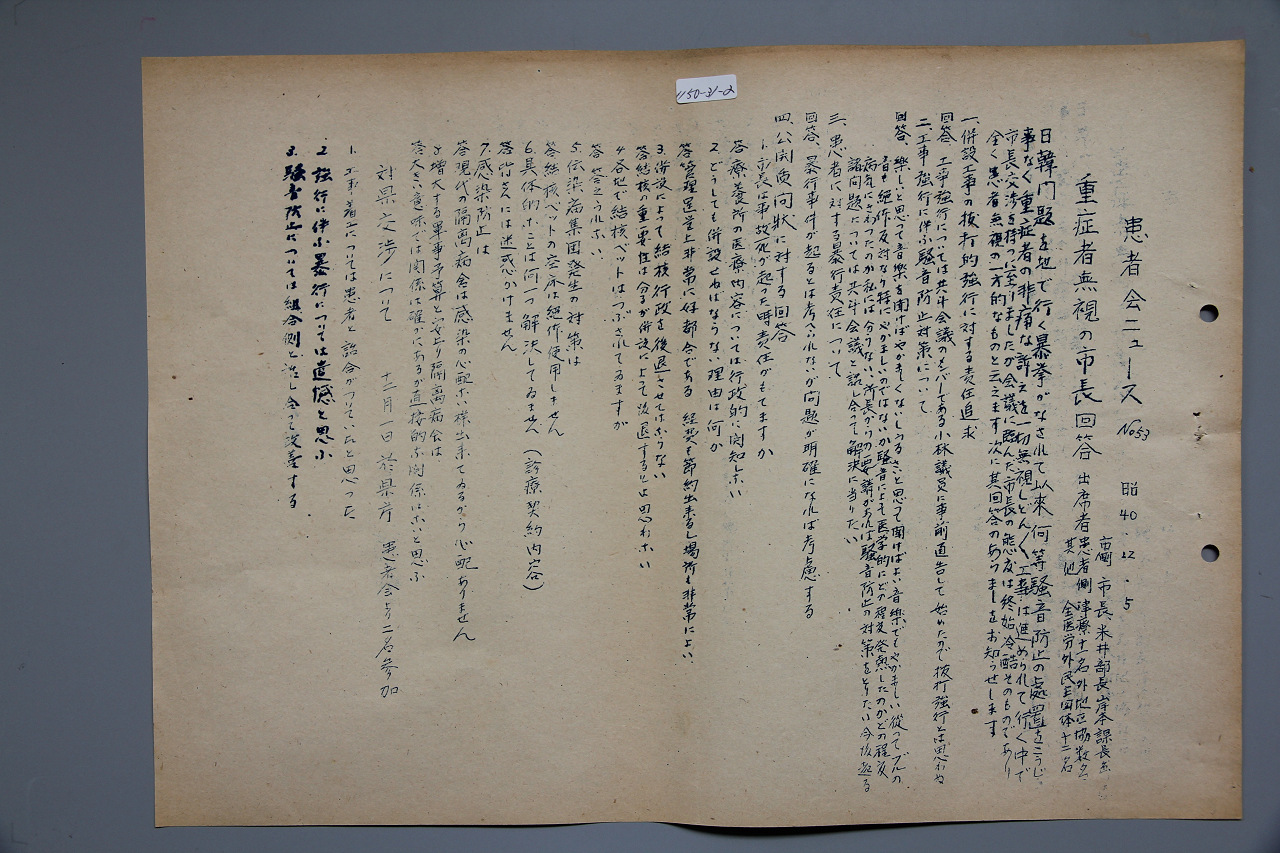 1150-31-2
患者会ニュース No53 昭40.12.5
重症者無視の市長回答 出席者
市側 市長、米井部長岸本課長
患者側 津療士名外地区協数名
其他 全医労外民主団体十二名
日韓問題を地で行く暴挙がなされて以来何等騒音防止の處置をこうじる
事なく重症者の非痛な訴えを一切無視しどんどん工事は進められて行く中で
市長交渉を持つに至りましたが会議に臨んだ市長の態度は終始冷酷そのものであり
全く患者無視の一方的なものと云えます次に其回答のあらましをお知らせします
一、併設工事の抜打的強行に対する責任追求
回答、工事強行については共斗会議のメンバーである小林議員に事前通告して始めたので抜打強行とは思わぬ
二、工事強行に伴ふ騒音防止対策について
回答、楽しいと思って音楽を聞けばやかましくないしうるさいと思って聞けばよい音楽でもやかましい従ってブルの
音も組作反対なり特にやかましいのではないか騒音によって医学的にどの程度発熱したのかどの程度
病気にさわったのか私には分らない所長からの要請があれば騒音防止の対策をとりたい今後起る
諸問題については共斗会議と話し合って解決に当りたい
三、患者に対する暴行責任について
回答、暴行事件が起るとは考へられないが問題が明確になれば考慮する
四、公開質問狀に対する回答
1.市長は事故死が起った時責任がもてますか
答 療養所の医療内容については行政的に関知しない
2.どうしても併設せねばならない理由は何か
答管理運営上非常に好都合である 経費も節約出来るし場所も非常によい
3.併設によって結核行政を後退させてはならない
答結核の重要性は分るが併設によって後退するとは思わない
4.各地で結核ベットはつぶされてるますが
答 答えられない
5.伝染病集団発生の対策は
答結核ベットの空床は絶体使用しません
6.具体的なことは何一つ解決してゐません(診療契約内容)
答皆さんには迷惑かけません
7.感染防止は
答現代の隔離病舎は感染の心配ない様出来てゐるから心配ありません
8.増大する軍事予算と安上り隔離病舎は
答大きい意味では関係は確かにあるが直接的な関係はないと思ふ
対県交渉について 十二月一日於県庁 患者会より二名参加
1.工事着工については患者と話合がついていたと思った
2.強行に伴ふ暴行については遺憾と思ふ
3.騒音防止については組合側と話し合って改善する